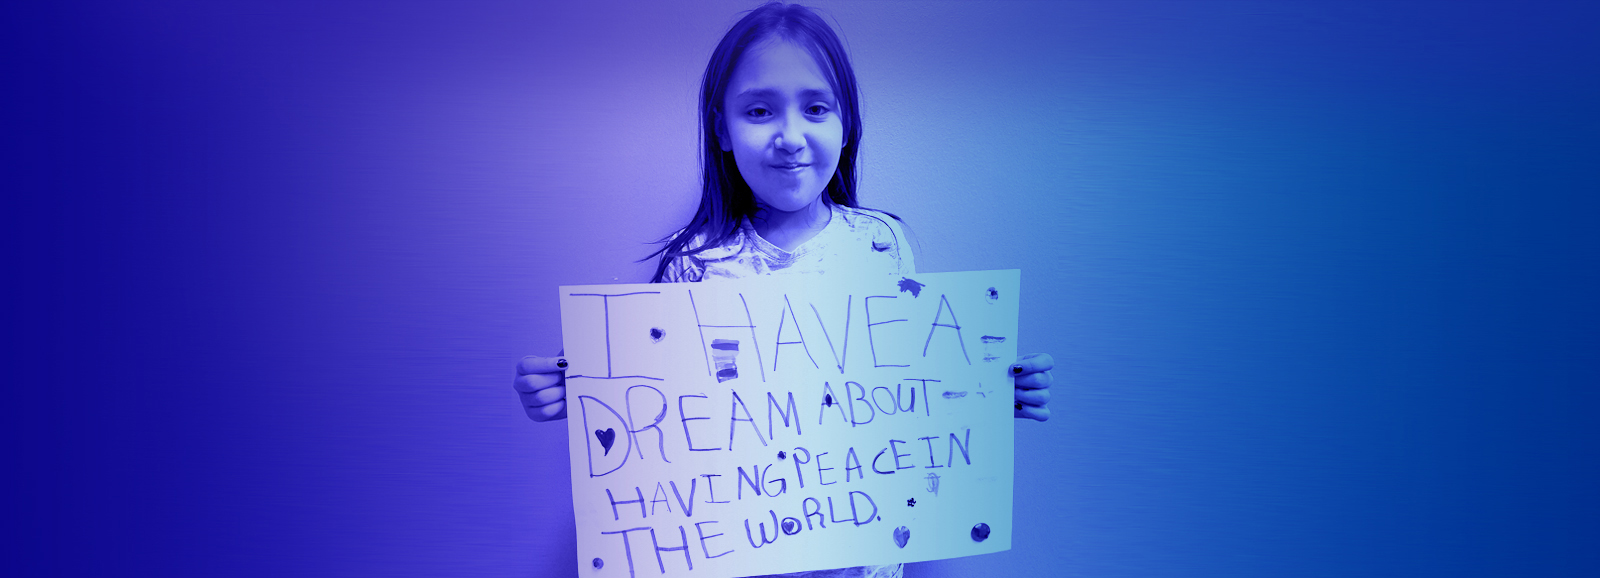 I HAVE A
DREAM ABOUT
HAVING PEACE IN
THE WORLD.